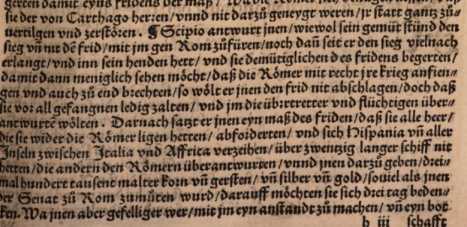 gerten damit eyns fridens der maß /
sie den von Carthago herren / vnnd nit darzů geneygt weren / jr statt gantz zů-
uertilgen vnd zerstören. ¶ Scipio antwurt jnen / wiewol sein gemüt stünd den
sieg vñ nit dē frid / mit jm gen Rom zůfüren / noch dañ seit er den sieg vjelnach
erlangt / vnd inn sein henden hett / vnd sie demütiglichen des fridens begerten /
damit dann meniglich sehen möcht / daß die Römer mit recht jre krieg anfien-
gen vnd auch zů end brechten / so wölt er jnen den frid nit abschlagen / doch daß
sie vor all gefangnen ledig zalten / vnd jm die übertretter vnd flüchtigen über-
antwurtē wölten. Darnach satzt er jnen eyn maß des friden / daß sie alle heer /
die sie wider die Römer ligen hetten / abforderten / vnd sich Hispania vñ aller
Inseln zwischen Italia vnd Affrica verzeihen / über zwenzig langer schiff nit
hetten / die andern den Römern überantwurten / vnnd jnen darzů geben / drei-
mal hundert tausent malter korn vñ gersten / vñ silber vñ gold / souiel als jnen
der Senat zů Rom zůmüten würd / darauff möchten sie sich drei tag beden-
ken. Wa jnen aber gefelliger wer / mit jm eyn anstandt zů machen / vñ eyn bot
h iij schafft